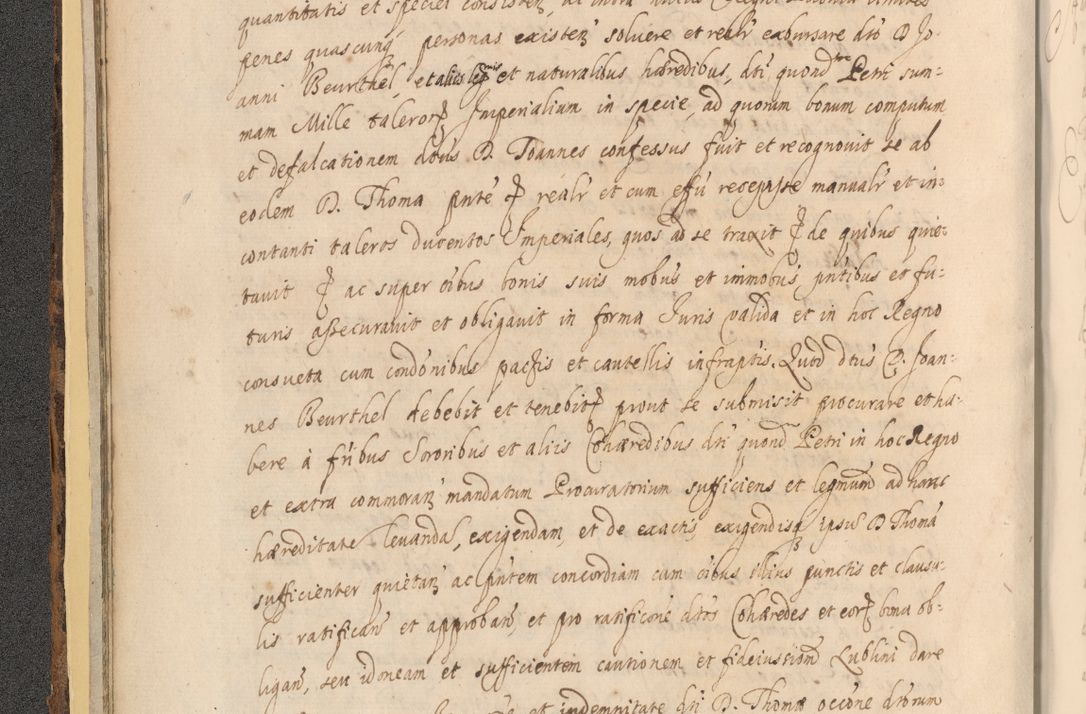 quantitatis et speciei consisten̄, ac intra huius Regni
penes quascunq̃ personas existen̄ soluere et realr̃ exbursare dtō D Jo-
anni Beurthel, et aliis leg̃mis et naturalibus hæredibus, dti quond Petri sum-
mam Mille taleror̃ Imperialium in specie, ad quorum bonum computum
et defalcationem dtūs D. Joannes confessus fuit et recognouit se ab
eodem D. Thoma pn̄te realr̃ et cum effū recepisse manualr̃ et in-
contanti taleros ducentos Imperiales, quos ad se traxit de quibus quie-
tauit ac super oībus bonis suis mobūs et immobūs pn̄tibus et fu-
turis assecurauit et obligauit in forma Juris valida et in hoc Regno
consueta cum condōnibus pactis et cautellis infraptīs. Quod dtūs D. Joan-
nes Beurthel debebit et tenebitr̃ prout se submisit procurare et ha-
bere à frībus Sororibus et aliis Cohæredibus dti quond Petri in hoc Regno
et extra commoran̄ mandatum Procuratorium sufficiens et legmum ad hanc
hæreditatē leuandā, exigendam, et de exactis, exigendisq̃ ipsūs D Thomā
sufficienter quietan̄ ac pn̄tem concordiam cum oībus illius punctis et clausu-
lis ratifican̄ et approban̄, et pro ratificōne dtōs Cohæredes et eor̃ bona ob-
ligan̄, seu idoneam et sufficientem cautionem et fideiussionē Lublini dare
et indemnitate dti D. Thomæ occōne dtōrum